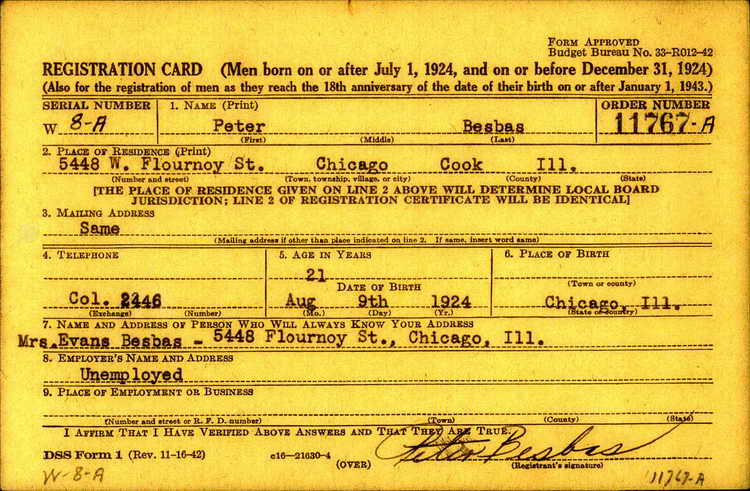 FORM APPROVED
Budget Bureau No. 33-R012-42
REGISTRATION CARD (Men born on or after July 1, 1924, and on or before December 31, 1924)
(Also for the registration of men as they reach the 18th anniversary of the date of their birth on or after January 1, 1943.)
SERIAL NUMBER 1. NAME (Print) ORDER NUMBER
W 8-A Peter Besbas 11767-A
(First) (Middle) (Last)
2. PLACE OF RESIDENCE (Print)
5448 W. Flournoy St. Chicago Cook Ill.
(Number and street) (Town, township, village, or city) (County) (State)
[THE PLACE OF RESIDENCE GIVEN ON LINE 2 ABOVE WILL DETERMINE LOCAL BOARD
JURISDICTION; LINE 2 OF REGISTRATION CERTIFICATE WILL BE IDENTICAL]
3. MAILING ADDRESS
Same
(Mailing address if other than place indicated on line 2. If same, insert word same)
4. TELEPHONE 5. AGE IN YEARS 6. PLACE OF BIRTH
21
DATE OF BIRTH (Town or county)
Col. 2446 Aug 9th 1924 Chicago, Ill.
(Exchange) (Number) (Mo.) (Day) (Yr.) (State or country)
7. NAME AND ADDRESS OF PERSON WHO WILL ALWAYS KNOW YOUR ADDRESS
Mrs.Evans Besbas - 5448 Flournoy St., Chicago, Ill.
8. EMPLOYER'S NAME AND ADDRESS
Unemployed
9. PLACE OF EMPLOYMENT OR BUSINESS
(Number and street or R. F. D. number) (Town) (County) (State)
I AFFIRM THAT I HAVE VERIFIED ABOVE ANSWERS AND THAT THEY ARE TRUE.
Peter Besbas
DSS Form 1 (Rev. 11-16-42) c16-21630-4
(OVER) (Registrant's signature)
W-8-A 11767-A